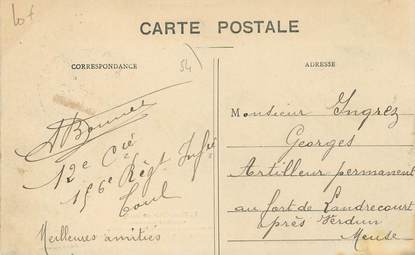 lot
CARTE POSTALE
CORRESPONDANCE
54
ADRESSE
ABonnet
12e Cié
156e Régt Infié
Toul
Meilleures amitiés
Monsieur Ingrez
Georges
Artilleur permanent
au fort de Landrecourt
près Verdun
Meuse